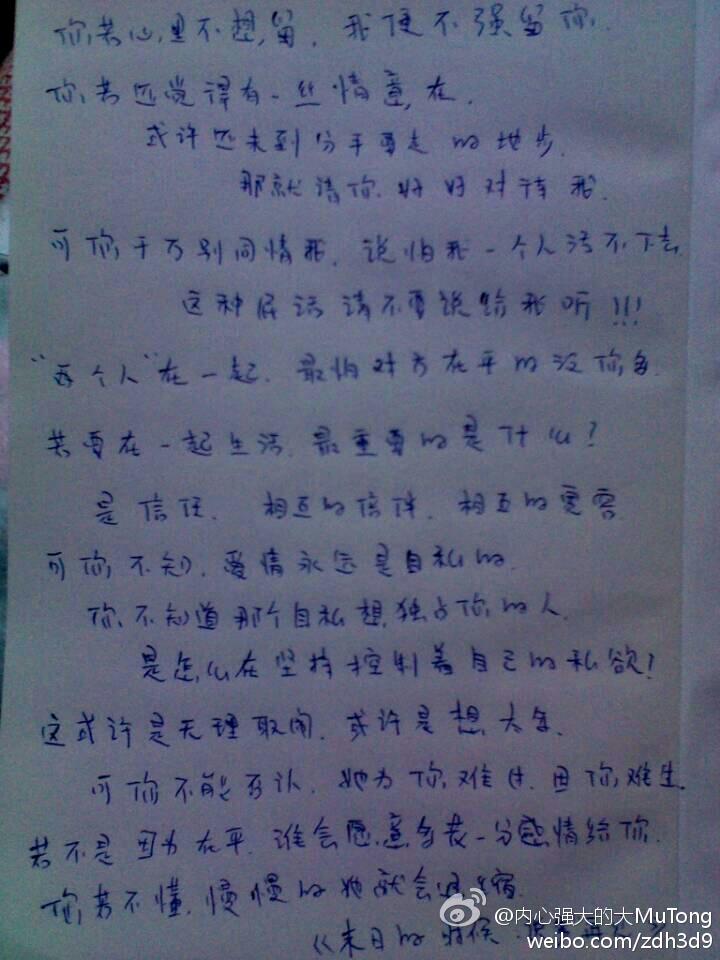 你若心里不想留,我便不强留你.
你若还觉得有一丝情意在.
或许还未到分手要走的地步.
那就请你好好对待我.
可你千万别同情我.说怕我一个人活不下去
这种屁话请不要说给我听!!!
"两个人"在一起.最怕对方在乎的没你多
若要在一起生活.最重要的是什么?
是信任.相互的信任.相互的宽容
可你不知.爱情永远是自私的.
你不知道那个自私想独占你的人.
是怎么在坚持控制着自己的私欲!
这或许是无理取闹.或许是想太多.
可你不能否认.她为你难过.因你难过.
若不是因为在乎.谁会愿意多花一分感情给你.
你若不懂.慢慢的她就会
《末日的时候
@内心强大的大MuTong
weibo.com/zdh3d9